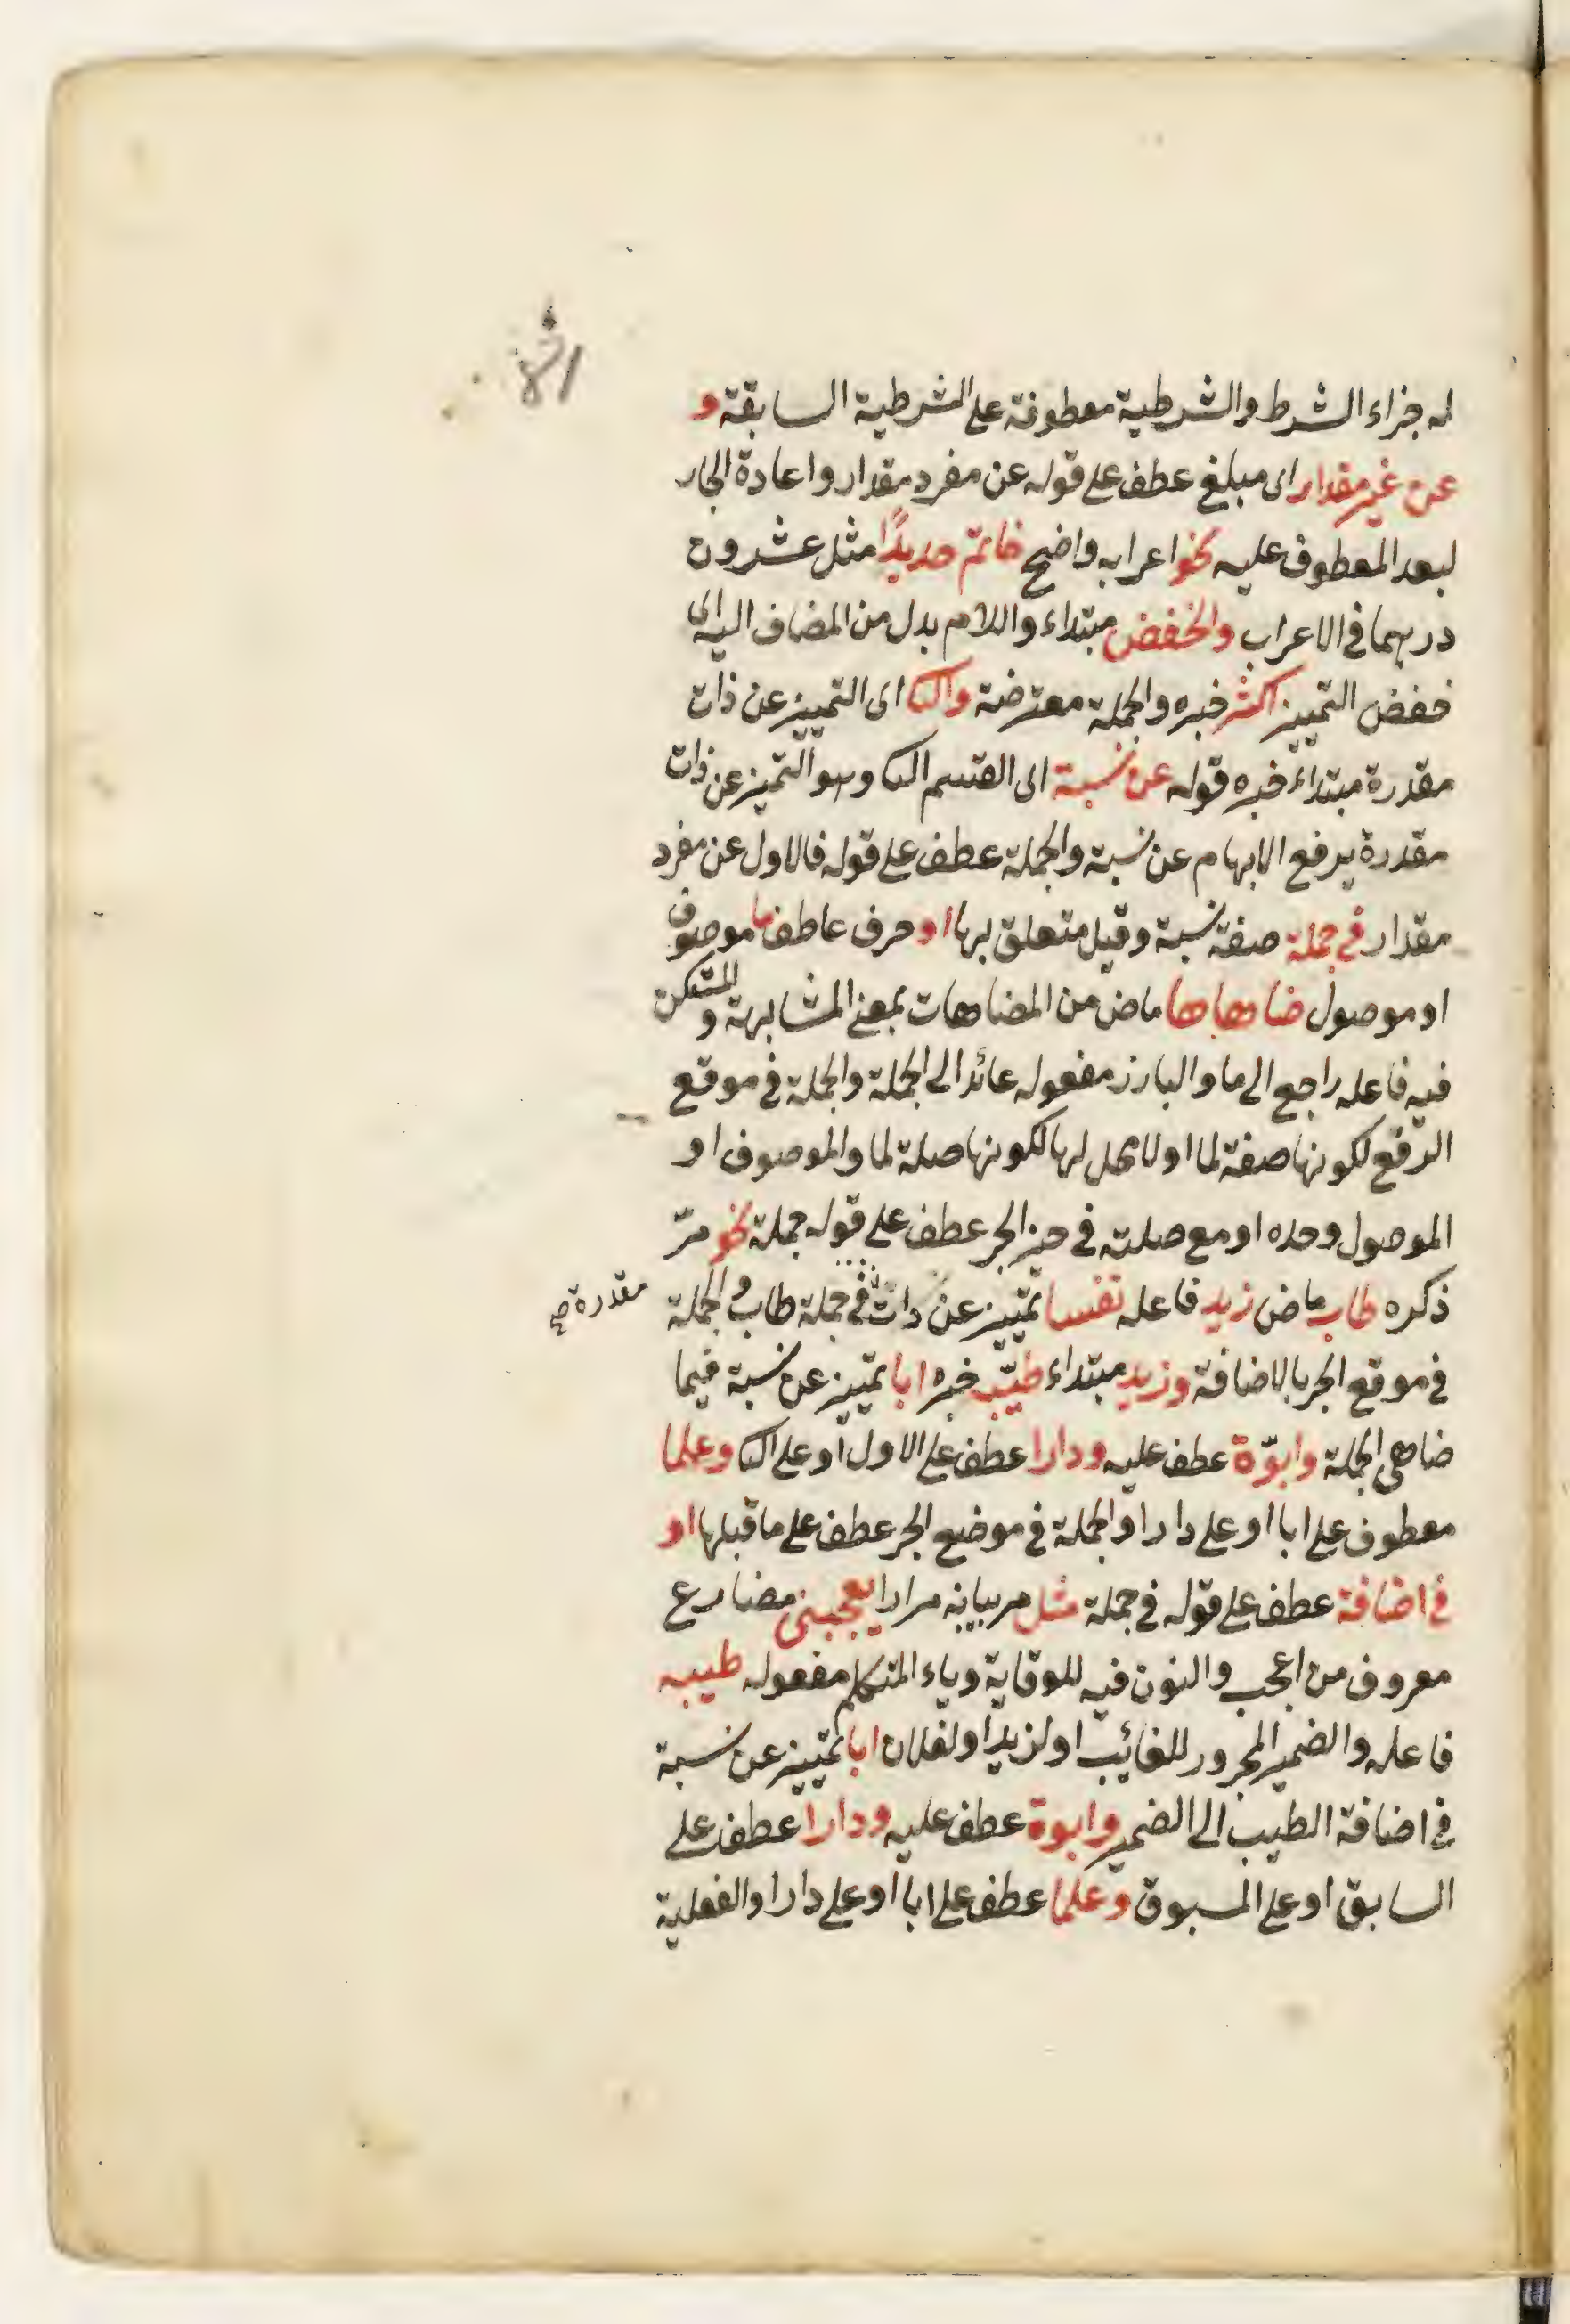 له جزاء الشرط والشرطية معطوفة على الشرطية السابقة و
عن غير مقدار اى مبلغ عطف على قوله عن مفرد مقدار واعادة الجار
لبعد المعطوف عليه نحو اعرابه واضح خاتم حديدًا مثل عشرون
درهما فى الاعراب والخفض مبتداء واللام بدل من المضاف اليه اى
خفض التمييز اكثر خبره والجملة معترضة والثا اى التمييز عن ذات
مقدرة مبتداء خبره قوله عن نسبة اى القسم الثا وهو التميز عن ذات
مقدرة يرفع الابهام عن نسبة والجملة عطف على قوله فالاول عن مفرد
مقدار فى جملة صفة نسبة وقيل متعلق بها او حرف عاطف ما موصوف
او موصول ضاهاها ماض من المضاهات بمعنى المشابهة و المستكن
فيه فاعله راجع الى ما والبارز مفعوله عائد الى الجملة والجملة فى موقع
الرفع لكونها صفة لما او لا محل لها لكونها صلة لما والموصوف او
الموصول وحده او مع صلته فى حيز الجر عطف على قوله جملة نحو مرّ
ذكره طاب ماض زيد فاعله نفسا تمييز عن ذات فى جملة طاب والجملة
مقدرة صح
فى موقع الجر بالاضافة وزيد مبتداء طيّب خبره ابا تمييز عن نسبة فيما
ضاهى الجملة وابوّة عطف عليه ودارا عطف على الاول او على الثا وعلما
معطوف على ابا او على دارا والجملة فى موضع الجر عطف على ما قبلها او
فى اضافة عطف على قوله فى جملة مثل مر بيانه مرارا يعجبنى مضارع
معروف من اعجب والنون فيه للوقاية وياء المتكلم مفعوله طيبه
فاعله والضمير المجرور للغائب او لزيد او لفلان ابا تمييز عن نسبة
فى اضافة الطيب الى الضمير وابوة عطف عليه ودارا عطف على
السابق او على المسبوق وعلما عطف على ابا او على دارا والفعلية